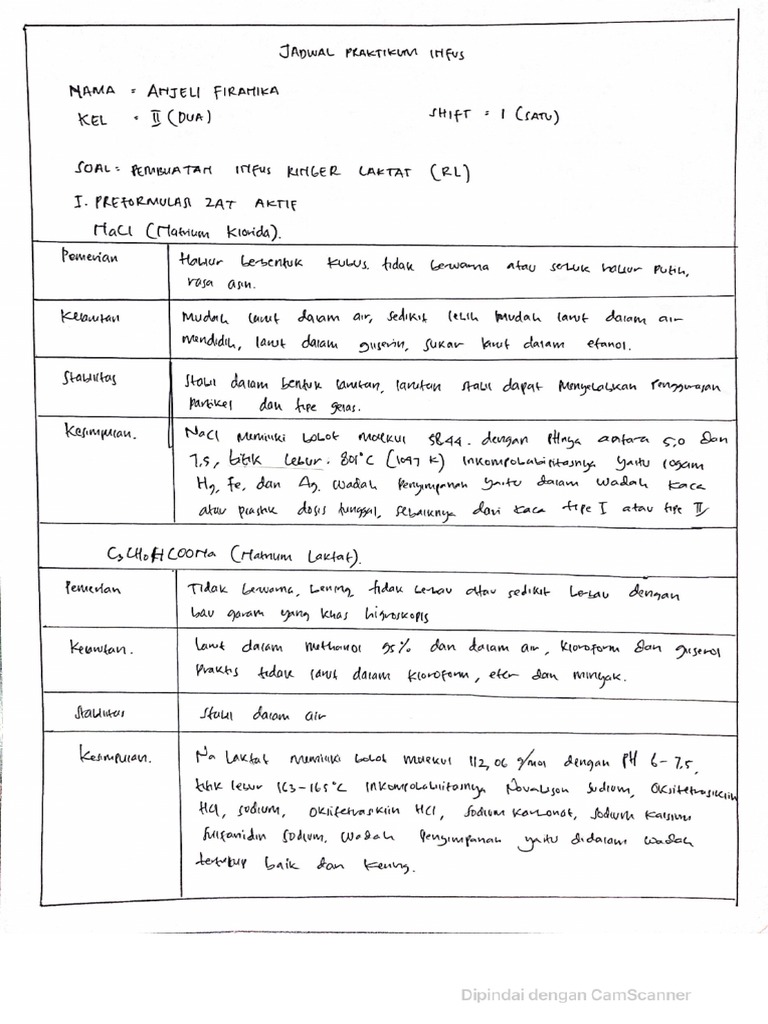 JADWAL PRAKTIKUM INFUS
NAMA = ANJELI FIRANIKA
KEL = II (DUA)
SHIFT = 1 (SATU)
SOAL = PEMBUATAN INFUS RINGER LAKTAT (RL)
I. PREFORMULASI ZAT AKTIF
NaCl (Natrium Klorida).
Pemerian
Hablur berbentuk kubus. tidak berwarna atau serbuk hablur putih,
rasa asin.
Kelarutan
Mudah larut dalam air, sedikit lebih mudah larut dalam air
mendidih, larut dalam gliserin, sukar larut dalam etanol.
Stabilitas
Stabil dalam bentuk larutan, larutan stabil dapat menyebabkan pengguguran
partikel dan tipe gelas.
Kesimpulan.
NaCl memiliki bobot molekul 58.44. dengan PHnya antara 5,0 dan
7,5, titik lebur. 801°C (1047 K) inkompatabilitasnya yaitu logam
Hg, Fe, dan Ag. Wadah penyimpanan yaitu dalam wadah kaca
atau plastik dosis tunggal, sebaiknya dari kaca tipe I atau tipe II
C3CHOHCOONa (Natrium Laktat).
Pemerian
Tidak berwarna, bening, tidak berbau atau sedikit berbau dengan
bau garam yang khas higroskopis
Kelarutan.
larut dalam methanol 95% dan dalam air, kloroform dan gliserol
Praktis tidak larut dalam kloroform, eter dan minyak.
Stabilitas
Stabil dalam air
Kesimpulan.
Na Laktat memiliki bobot molekul 112,06 g/mol dengan PH 6-7,5,
titik lebur 163-165°C inkompatabilitasnya Novabison sudium, Oksitetrasiklin
HCl, sodium, Oksitetrasiklin HCl, sodium karbonat, sodium kalsium
sulfanidin sodium. Wadah penyimpanan yaitu didalam wadah
tertutup baik dan kering.
Dipindai dengan CamScanner